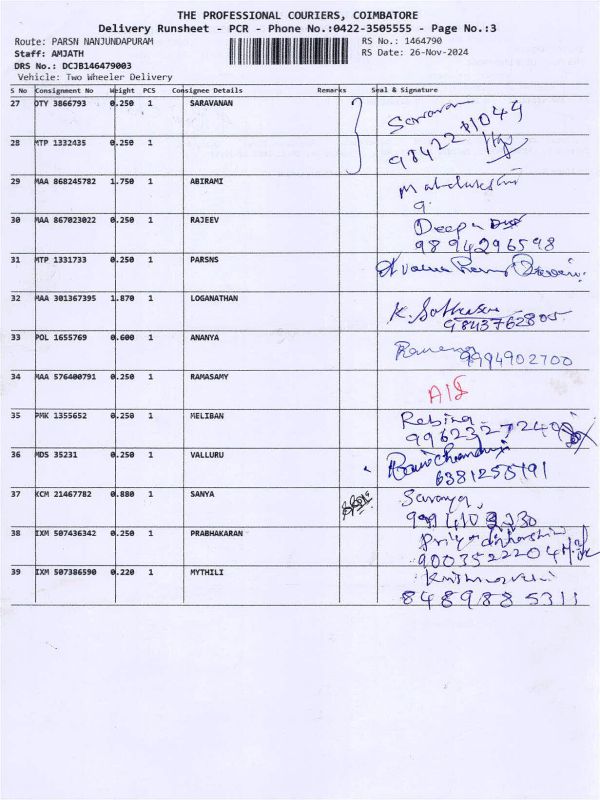 THE PROFESSIONAL COURIERS, COIMBATORE
Delivery Runsheet - PCR - Phone No.:0422-3505555 - Page No.:3
Route: PARSN NANJUNDAPURAM RS No.: 1464790
Staff: AMJATH RS Date: 26-Nov-2024
DRS No.: DCJB146479003
Vehicle: Two Wheeler Delivery
S No Consignment No Weight PCS Consignee Details Remarks Seal & Signature
27 OTY 3866793 0.250 1 SARAVANAN Saravanan
28 MTP 1332435 0.250 1
29 MAA 868245782 1.750 1 ABIRAMI
9.
30 MAA 867023022 0.250 1 RAJEEV Deepa
9894296598
31 MTP 1331733 0.250 1 PARSNS
32 MAA 301367395 1.870 1 LOGANATHAN K.
9843762805
33 POL 1655769 0.600 1 ANANYA
9994902700
34 MAA 576400791 0.250 1 RAMASAMY
35 PMK 1355652 0.250 1 MELIBAN Rebina
36 MDS 35231 0.250 1 VALLURU
6381255191
37 KCM 21467782 0.880 1 SANYA Saranya
38 IXM 507436342 0.250 1 PRABHAKARAN Priyadharshini
9003522204
39 IXM 507386590 0.220 1 MYTHILI Krishnaveni
8489885311